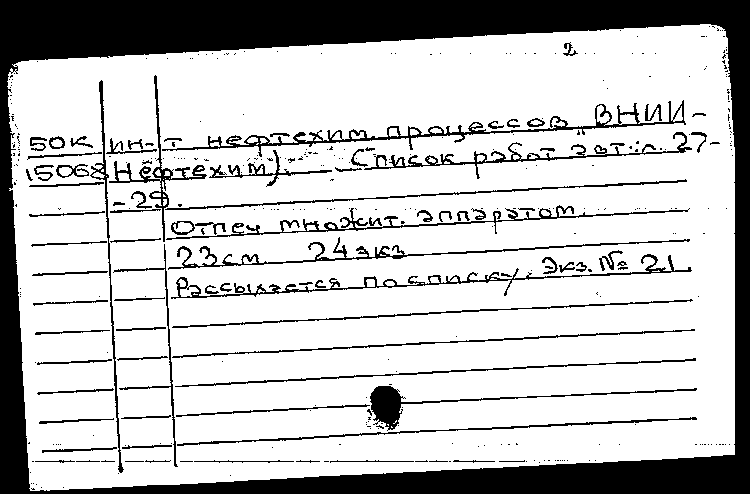 2
50к ин-т нефтехим. процессов „ВНИИ-
15068 Нефтехим). Список работ авт: л. 27-
-29.
Отпеч множит. аппаратом.
23см. 24 экз
Рассылается по списку. Экз. № 21.